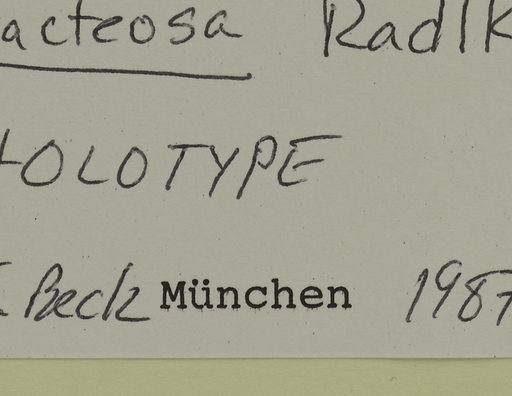 acteosa Radlk
HOLOTYPE
Beck München 1987